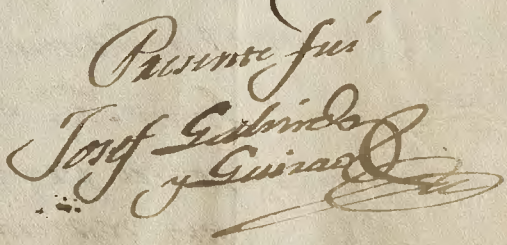 Presente fui
Josef Galindo
y Guirao